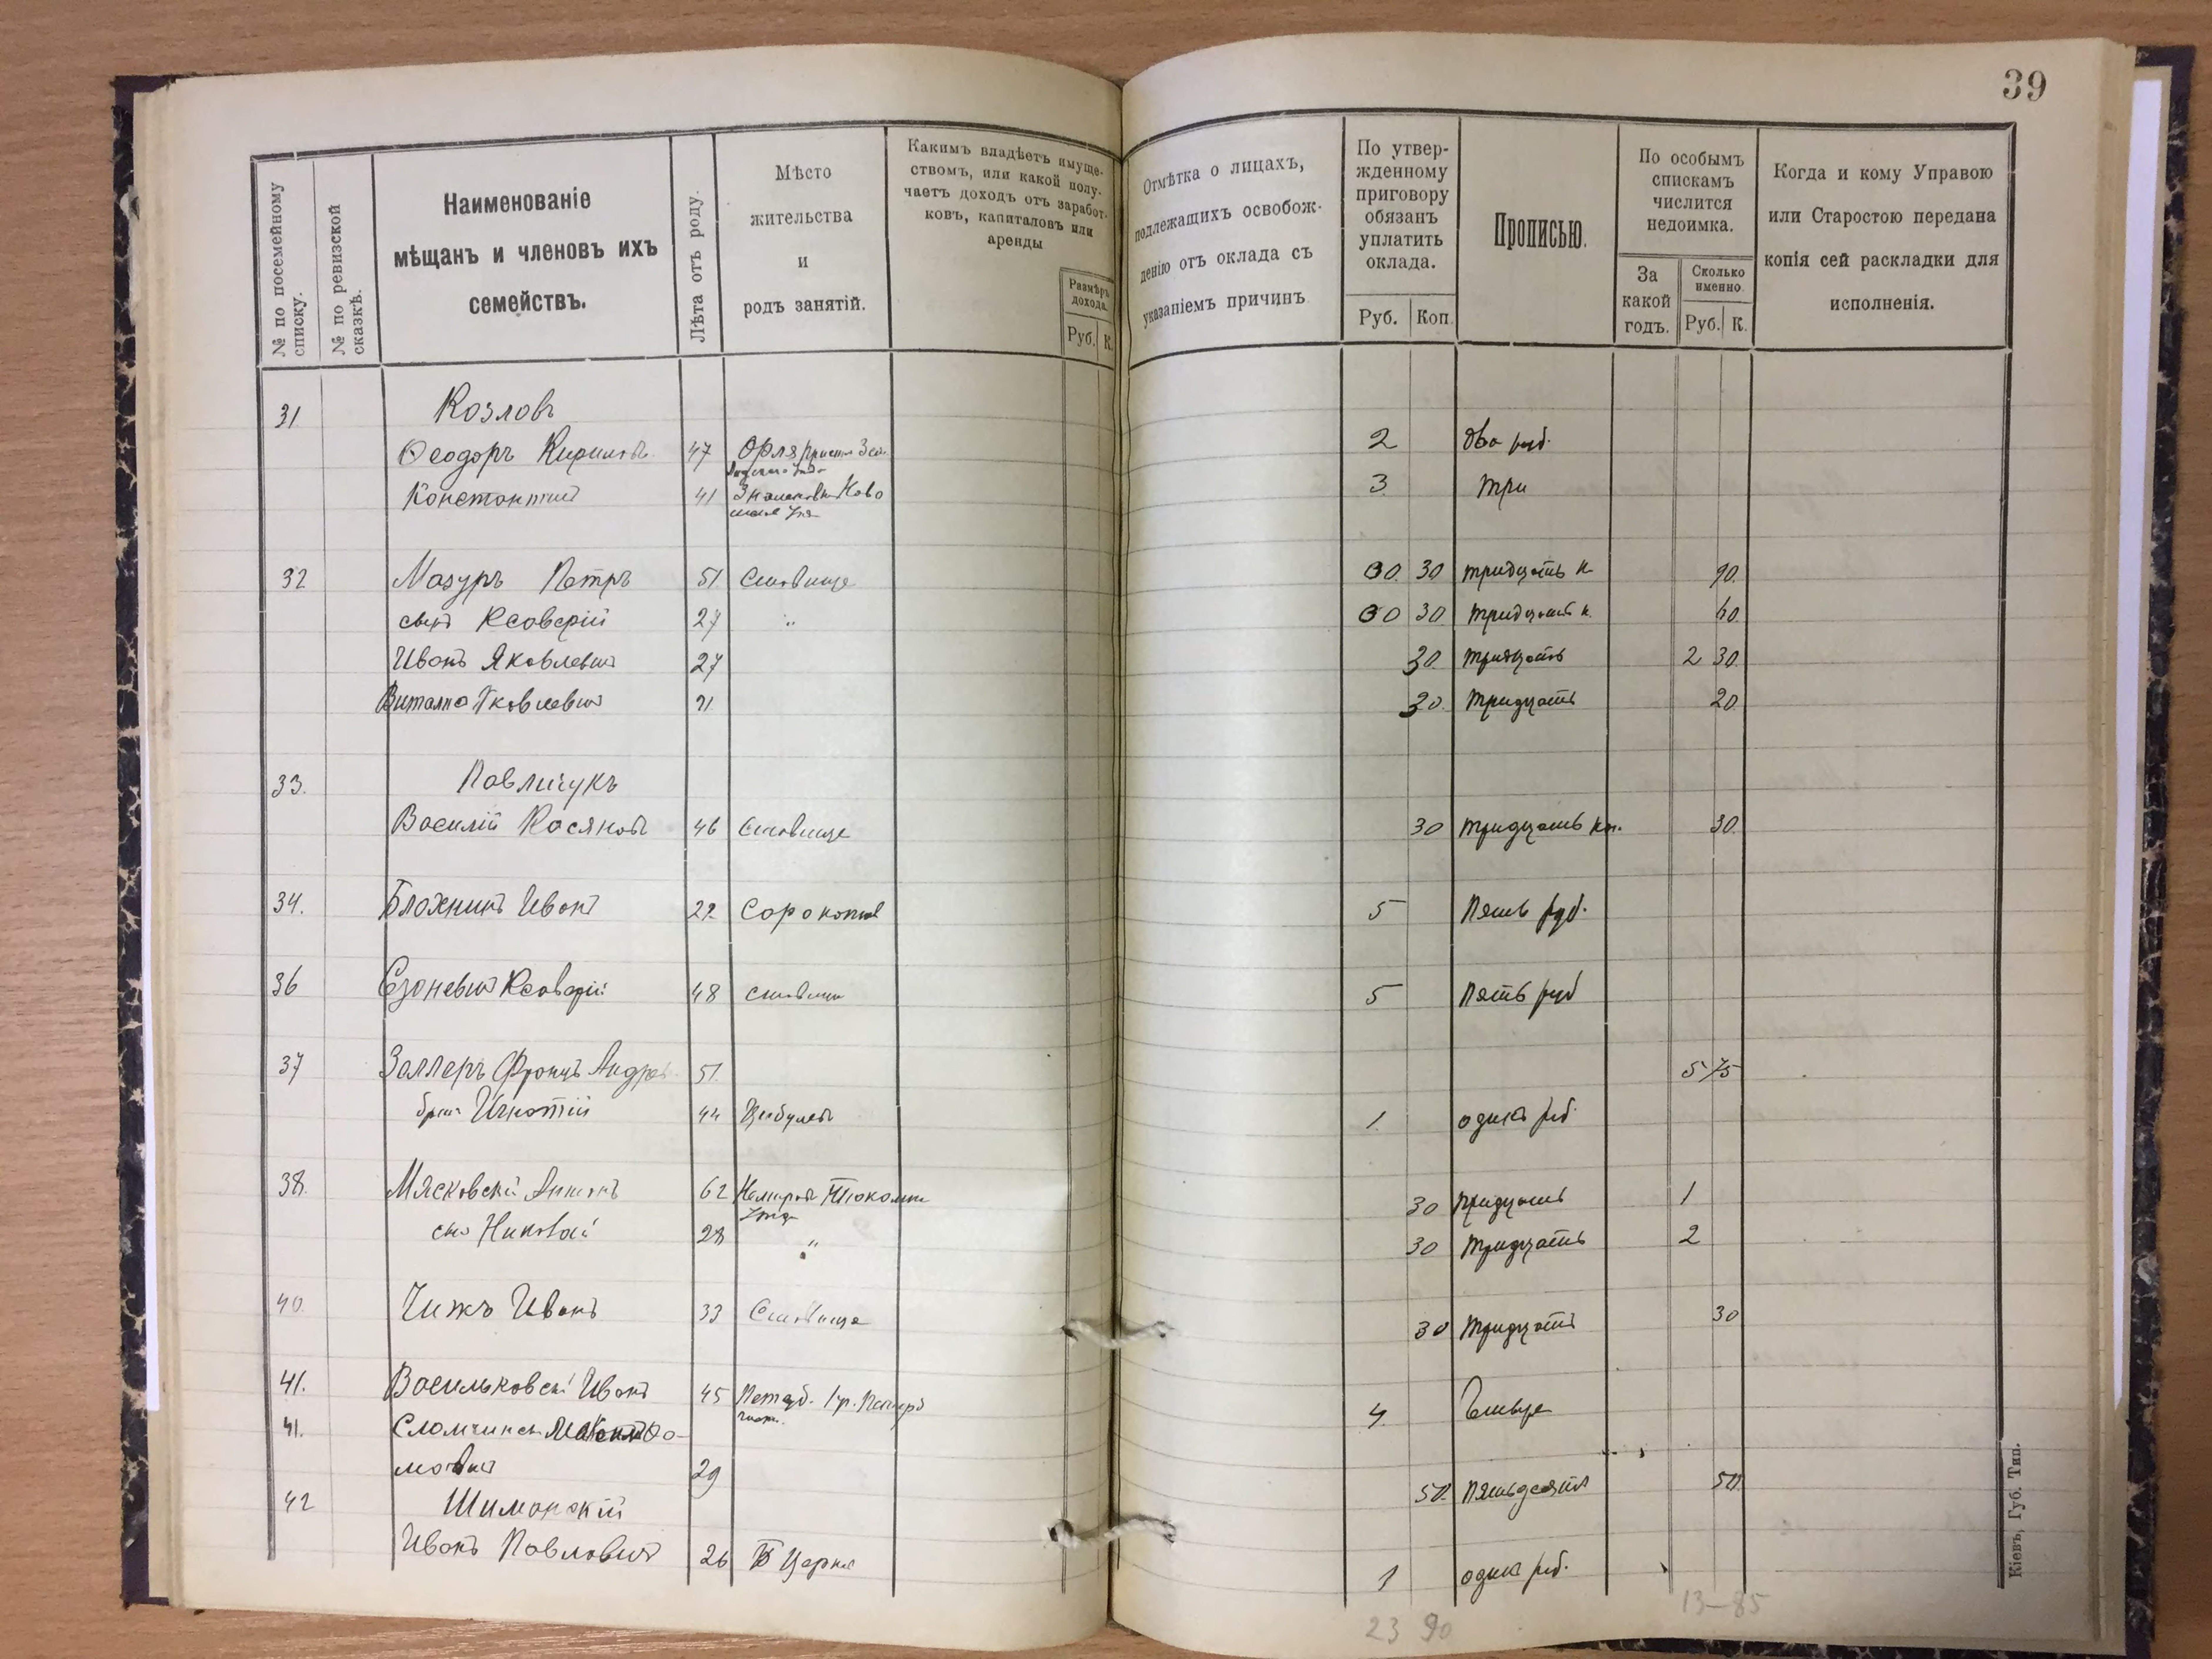 39
№ по посемейному списку.
№ по ревизской сказкѣ.
Наименованіе
мѣщанъ и членовъ ихъ
семействъ.
Лѣта отъ роду.
Мѣсто
жительства
и
родъ занятій.
Какимъ владѣетъ имуще-
ствомъ, или какой полу-
чаетъ доходъ отъ заработ-
ковъ, капиталовъ или
аренды
Размѣръ
дохода
Руб. К.
Отмѣтка о лицахъ,
подлежащихъ освобож-
денію отъ оклада съ
указаніемъ причинъ
По утвер-
жденному
приговору
обязанъ
уплатить
оклада.
Руб. Коп.
Прописью.
По особымъ
спискамъ
числится
недоимка.
За
какой
годъ.
Сколько
именно
Руб. К.
Когда и кому Управою
или Старостою передана
копія сей раскладки для
исполненія.
31 Козловъ
Ѳеодоръ Кириловъ 47 2 два руб.
Константинъ 41 3 три
32 Мазуръ Петръ 51 Ставище 00 30 тридцать к. 90
сынъ Ксаверій 27 " 00 30 тридцать к. 60
Иванъ Яковлевичъ 27 30 тридцать 2 30
Виталій Яковлевичъ 21 30 тридцать 20
33. Павличукъ
Василій Касяновъ 46 Ставище 30 тридцать коп. 30
34. Иванъ 22 5 Пять руб.
36 Ксаверій 48 Ставище 5 Пять руб
37 Заллеръ Францъ 51 5 75
братъ Игнатій 44 1 одинъ руб.
38. Мясковскій Антонъ 62 30 тридцать 1
сынъ Николай 28 " 30 тридцать 2
40. Чижъ Иванъ 33 Ставище 30 тридцать 30
41. Васильковскі Иванъ 45 4 Четыре
41.
29 50 пятьдесятъ 50
42 Шиманскій
Иванъ Павловичъ 26 Б Церковь 1 один руб.
23 90 13—85
Кіевъ, Губ. Тип.